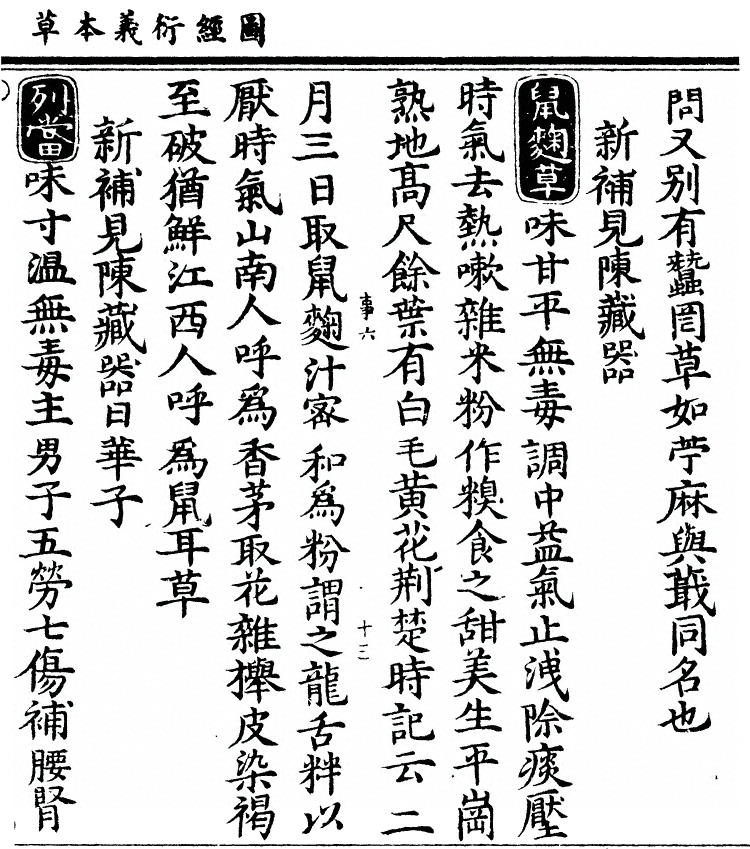 圖經衍義本草
問又别有蠶罔草如苧麻與蕺同名也
新補見陳藏器
鼠麴草味甘平無毒調中益氣止洩除痰壓
時氣去熱嗽雜米粉作糗食之甜美生平崗
熟地高尺餘葉有白毛黃花荆楚時記云二
事六 十三
月三日取鼠麴汁宻和為粉謂之龍舌粄以
厭時氣山南人呼為香茅取花雜櫸皮染褐
至破猶鮮江西人呼為鼠耳草
新補見陳藏器日華子
列當味寸溫無毒主男子五勞七傷補腰腎